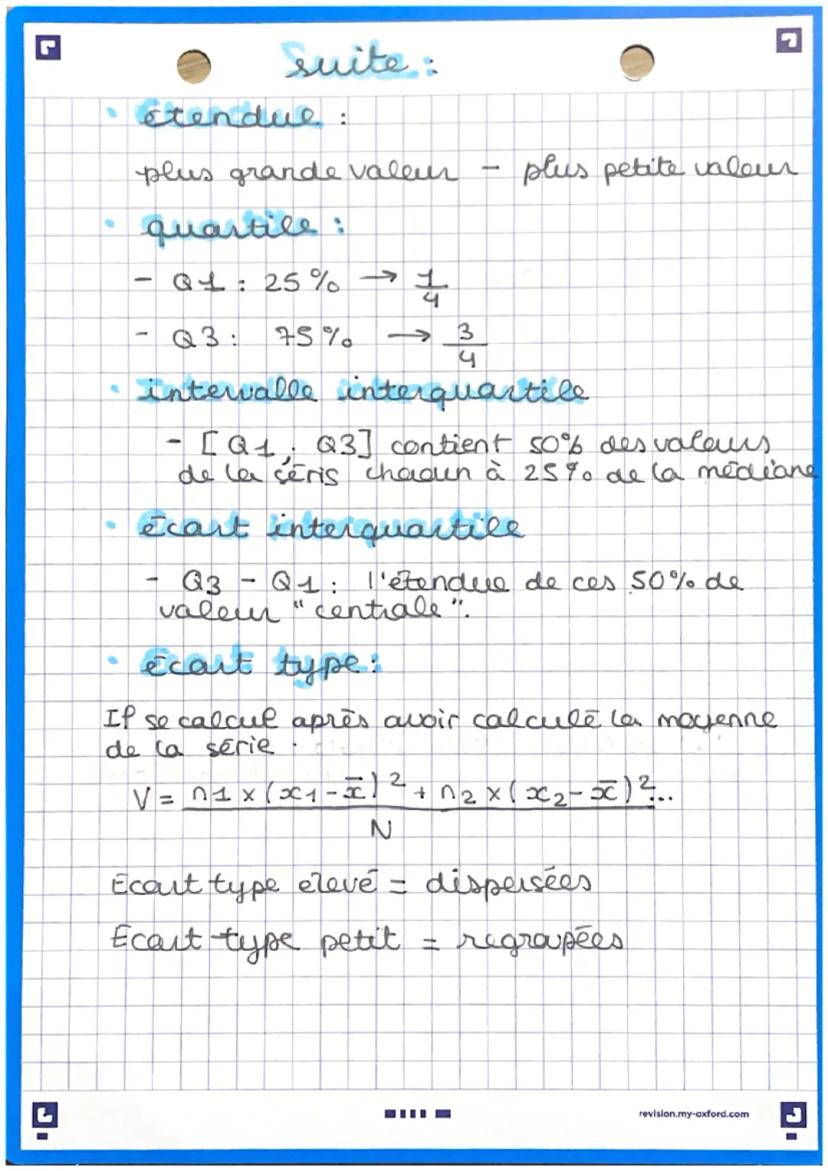 Suite :
• étendue :
plus grande valeur - plus petite valeur
• quartile :
- Q1 : 25% → 1/4
- Q3 : 75% → 3/4
• intervalle interquartile
- [Q1 ; Q3] contient 50% des valeurs
de la séris chacun à 25% de la médiane
• écart interquartile
- Q3 - Q1 : l'étendue de ces 50% de
valeur "centrale".
• écart type :
Il se calcul après avoir calculé la moyenne
de la série .
V = n1 × (x1 - x̄)² + n2 × (x2 - x̄)²... / N
Écart type elevé = dispersées
Écart type petit = regrapées
revision.my-oxford.com